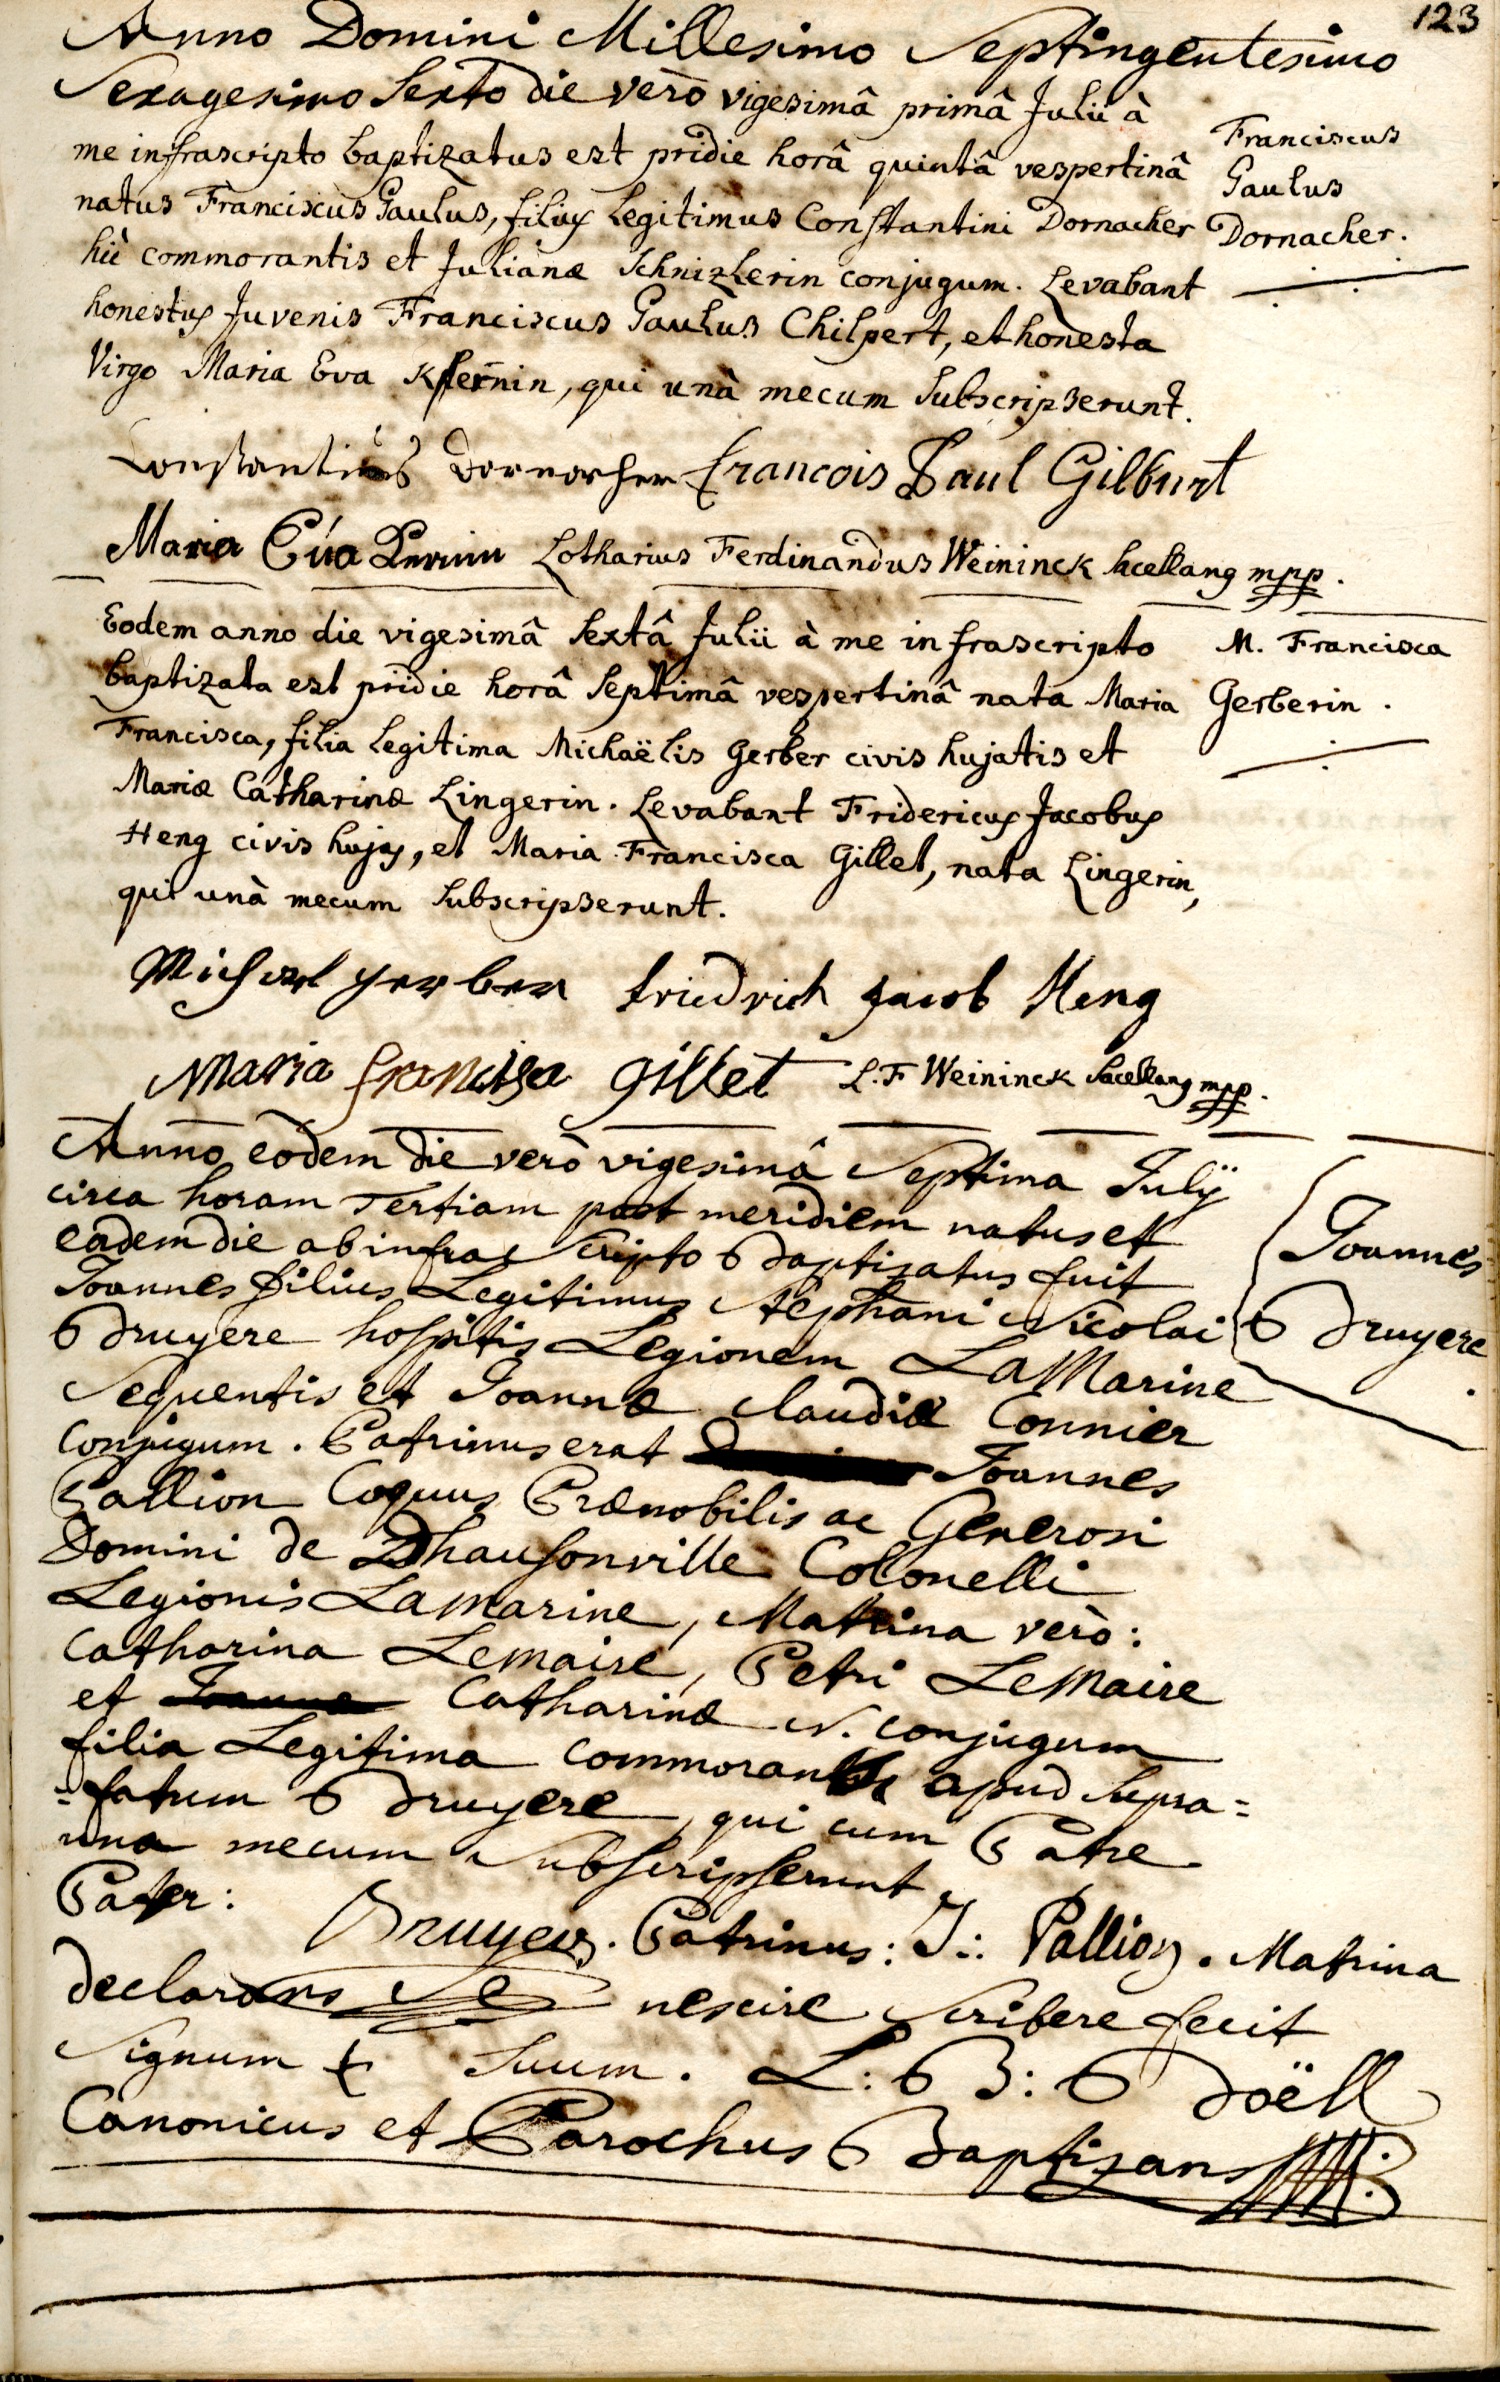 123
Anno Domini Millesimo Septingentesimo
Sexagesimo Sexto die verò vigesimâ primâ Julii à
me infrascripto baptizatus est pridie horâ quintâ vespertinâ
natus Franciscus Paulus, filius Legitimus Constantini Dornacher
hìc commorantis et Julianæ Schnizlerin conjugum. Levabant
honestus Juvenis Franciscus Paulus Chilpert, et honesta
Virgo Maria Eva , qui unà mecum Subscripserunt.
Franciscus
Paulus
Dornacher.
Constantinus Dornacher Francois Paul Gilbert
Maria Eva Lotharius Ferdinandus Weininck Sacellanus mpp.
Eodem anno die vigesimâ Sextâ Julii à me infrascripto
baptizata est pridie horâ Septimâ vespertinâ nata Maria
Francisca, filia Legitima Michaëlis Gerber civis hujatis et
Mariæ Catharinæ Lingerin. Levabant Fridericus Jacobus
Heng civis hujas, et Maria Francisca Gillet, nata Lingerin,
qui unà mecum Subscripserunt.
M. Francisca
Gerberin.
Michael gerber friedrich jacob Heng
Maria francisca gillet L: F Weininck Sacellanus mpp.
Anno eodem die verò vigesimâ Septima Julij
circa horam Tertiam post meridiem natus et
eadem die ab infra Scripto Baptizatus fuit
Joannes filius Legitimus Stephani Nicolai
Bruyere hospitis Legionem La Marine
Sequentis et Joannæ Claudiæ Connier
Conjugum. Patrinus erat Joannes
Pallion Coquus Prænobilis ac Generosi
Domini de Dhausonville Colonelli
Legionis La Marine, Matrina verò:
Catharina Lemaire, Petri Le Maire
et Catharinæ N. conjugum
filia Legitima commorans apud Supra=
=fatum Bruyere, qui cum Patre
una mecum Subscripserunt
Joannes
Bruyere.
Pater: Bruyere. Patrinus: J: Pallion. Matrina
declarans Se nescire Scribere fecit
Signum + Suum. L: B: Boëll
Canonicus et Parochus Baptizans